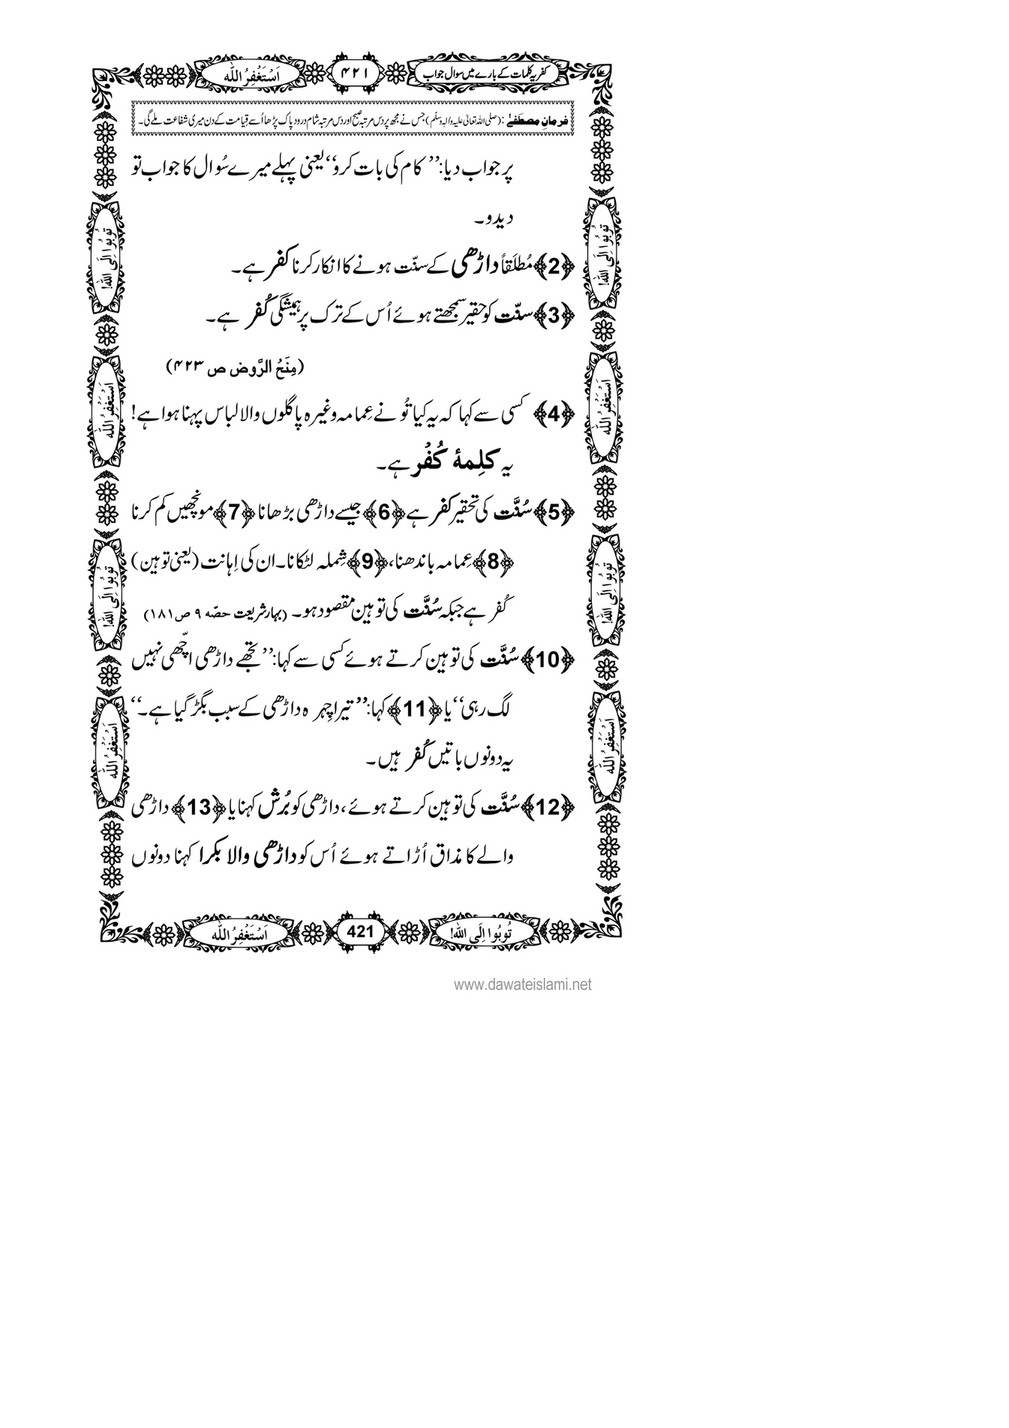 کفریہ کلمات کے بارے میں سوال جواب
۴۲۱
اَسْتَغْفِرُ اللّٰه
فرمانِ مصطَفٰے : (صلی اللہ تعالیٰ علیہ والہ وسلّم) جس نے مجھ پر دس مرتبہ صبح اور دس مرتبہ شام درود پاک پڑھا اُسے قیامت کے دن میری شفاعت ملے گی۔
پر جواب دیا: ’’کام کی بات کرو‘‘ یعنی پہلے میرے سُوال کا جواب تو
دیدو۔
﴿2﴾ مُطلَقاً داڑھی کے سنّت ہونے کا انکار کرنا کفر ہے۔
﴿3﴾ سنّت کو حقیر سمجھتے ہوئے اُس کے ترک پر ہمیشگی کُفر ہے۔
(مِنَحُ الرَّوض ص ۴۲۳)
﴿4﴾ کسی سے کہا کہ یہ کیا تُو نے عِمامہ وغیرہ پاگلوں والا لباس پہنا ہوا ہے!
یہ کلِمۂ کُفْر ہے۔
﴿5﴾ سُنَّت کی تحقیر کفر ہے ﴿6﴾ جیسے داڑھی بڑھانا ﴿7﴾ مونچھیں کم کرنا
﴿8﴾ عِمامہ باندھنا، ﴿9﴾ شِملہ لٹکانا۔ ان کی اِہانت (یعنی توہین)
کُفر ہے جبکہ سُنَّت کی توہین مقصود ہو۔ (بہارِ شریعت حصّہ ۹ ص ۱۸۱)
﴿10﴾ سُنَّت کی توہین کرتے ہوئے کسی سے کہا: ’’تجھے داڑھی اچّھی نہیں
لگ رہی‘‘ یا ﴿11﴾ کہا: ’’تیرا چِہرہ داڑھی کے سبب بگڑ گیا ہے۔‘‘
یہ دونوں باتیں کُفر ہیں۔
﴿12﴾ سُنَّت کی توہین کرتے ہوئے، داڑھی کو بُرَش کہنا یا ﴿13﴾ داڑھی
والے کا مذاق اُڑاتے ہوئے اُس کو داڑھی والا بکرا کہنا دونوں
تُوبُوا اِلَی اللّٰه!
اَسْتَغْفِرُ اللّٰه
تُوبُوا اِلَی اللّٰه!
اَسْتَغْفِرُ اللّٰه
تُوبُوا اِلَی اللّٰه!
اَسْتَغْفِرُ اللّٰه
تُوبُوا اِلَی اللّٰه!
اَسْتَغْفِرُ اللّٰه
تُوبُوا اِلَی اللّٰه!
421
اَسْتَغْفِرُ اللّٰه
www.dawateislami.net